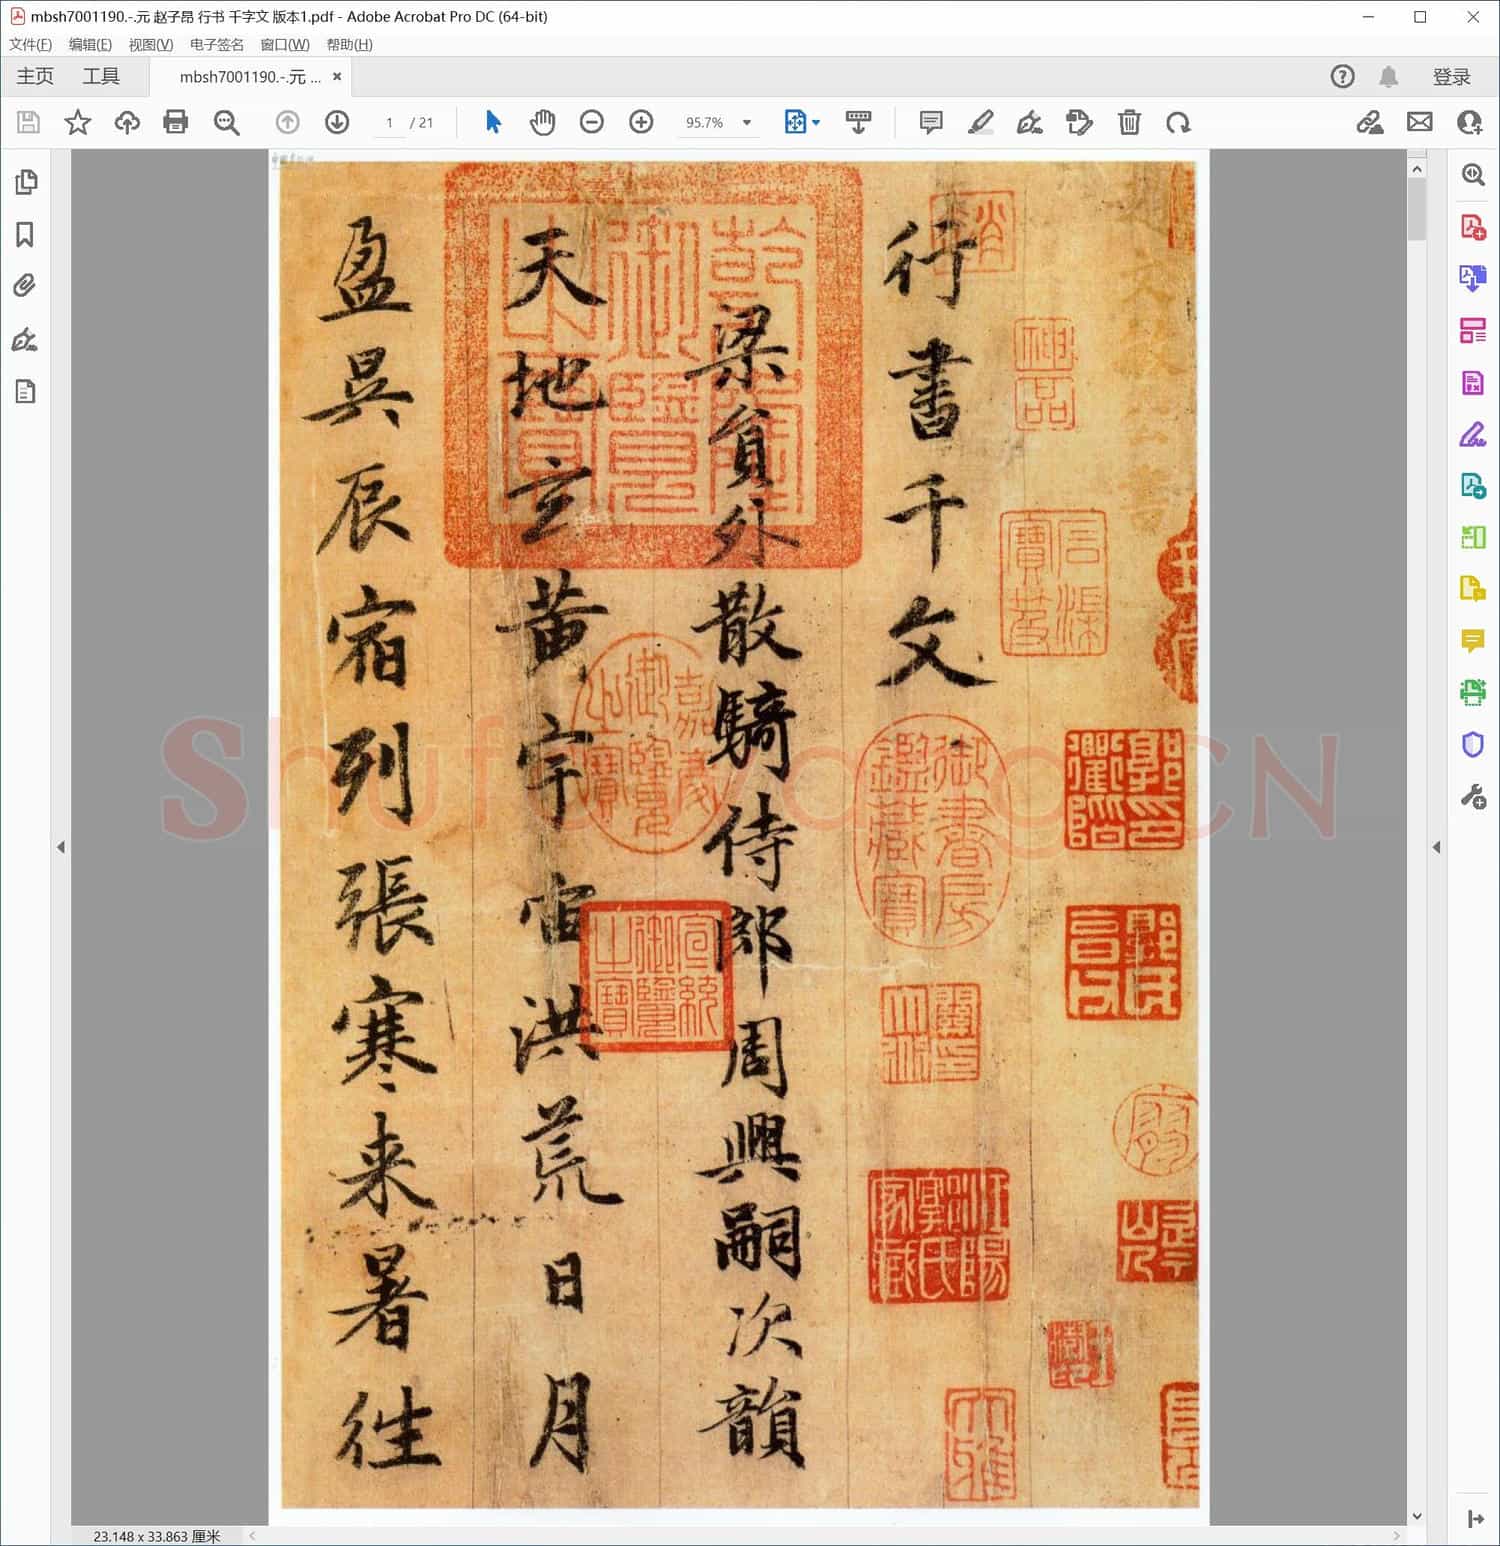 mbsh7001190.-.元 赵子昂 行书 千字文 版本1.pdf - Adobe Acrobat Pro DC (64-bit)
文件(F) 编辑(E) 视图(V) 电子签名 窗口(W) 帮助(H)
主页 工具 mbsh7001190.-.元 ... × 登录
1 / 21 95.7%
神品
石渠寶笈
郭氏
行書千文
御書房鑑藏寶
乾隆御覽之寶
梁貟外散騎侍郎周興嗣次韻
嘉慶御覽之寶
宣統御覽之寶
天地玄黄宇宙洪荒日月
盈昃辰宿列張寒来暑往
23.148 x 33.863 厘米